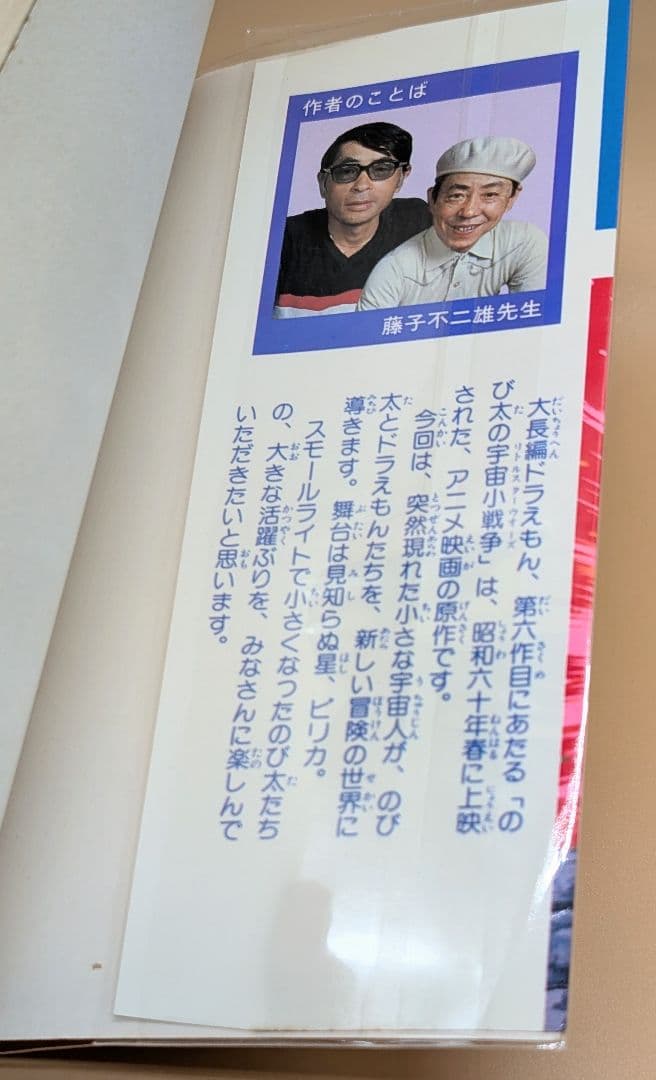 作者のことば
藤子不二雄先生
大長編ドラえもん、第六作目にあたる「の
び太の宇宙小戦争」は、昭和六十年春に上映
された、アニメ映画の原作です。
今回は、突然現れた小さな宇宙人が、のび
太とドラえもんたちを、新しい冒険の世界に
導きます。舞台は見知らぬ星、ピリカ。
スモールライトで小さくなったのび太たち
の、大きな活躍ぶりを、みなさんに楽しんで
いただきたいと思います。